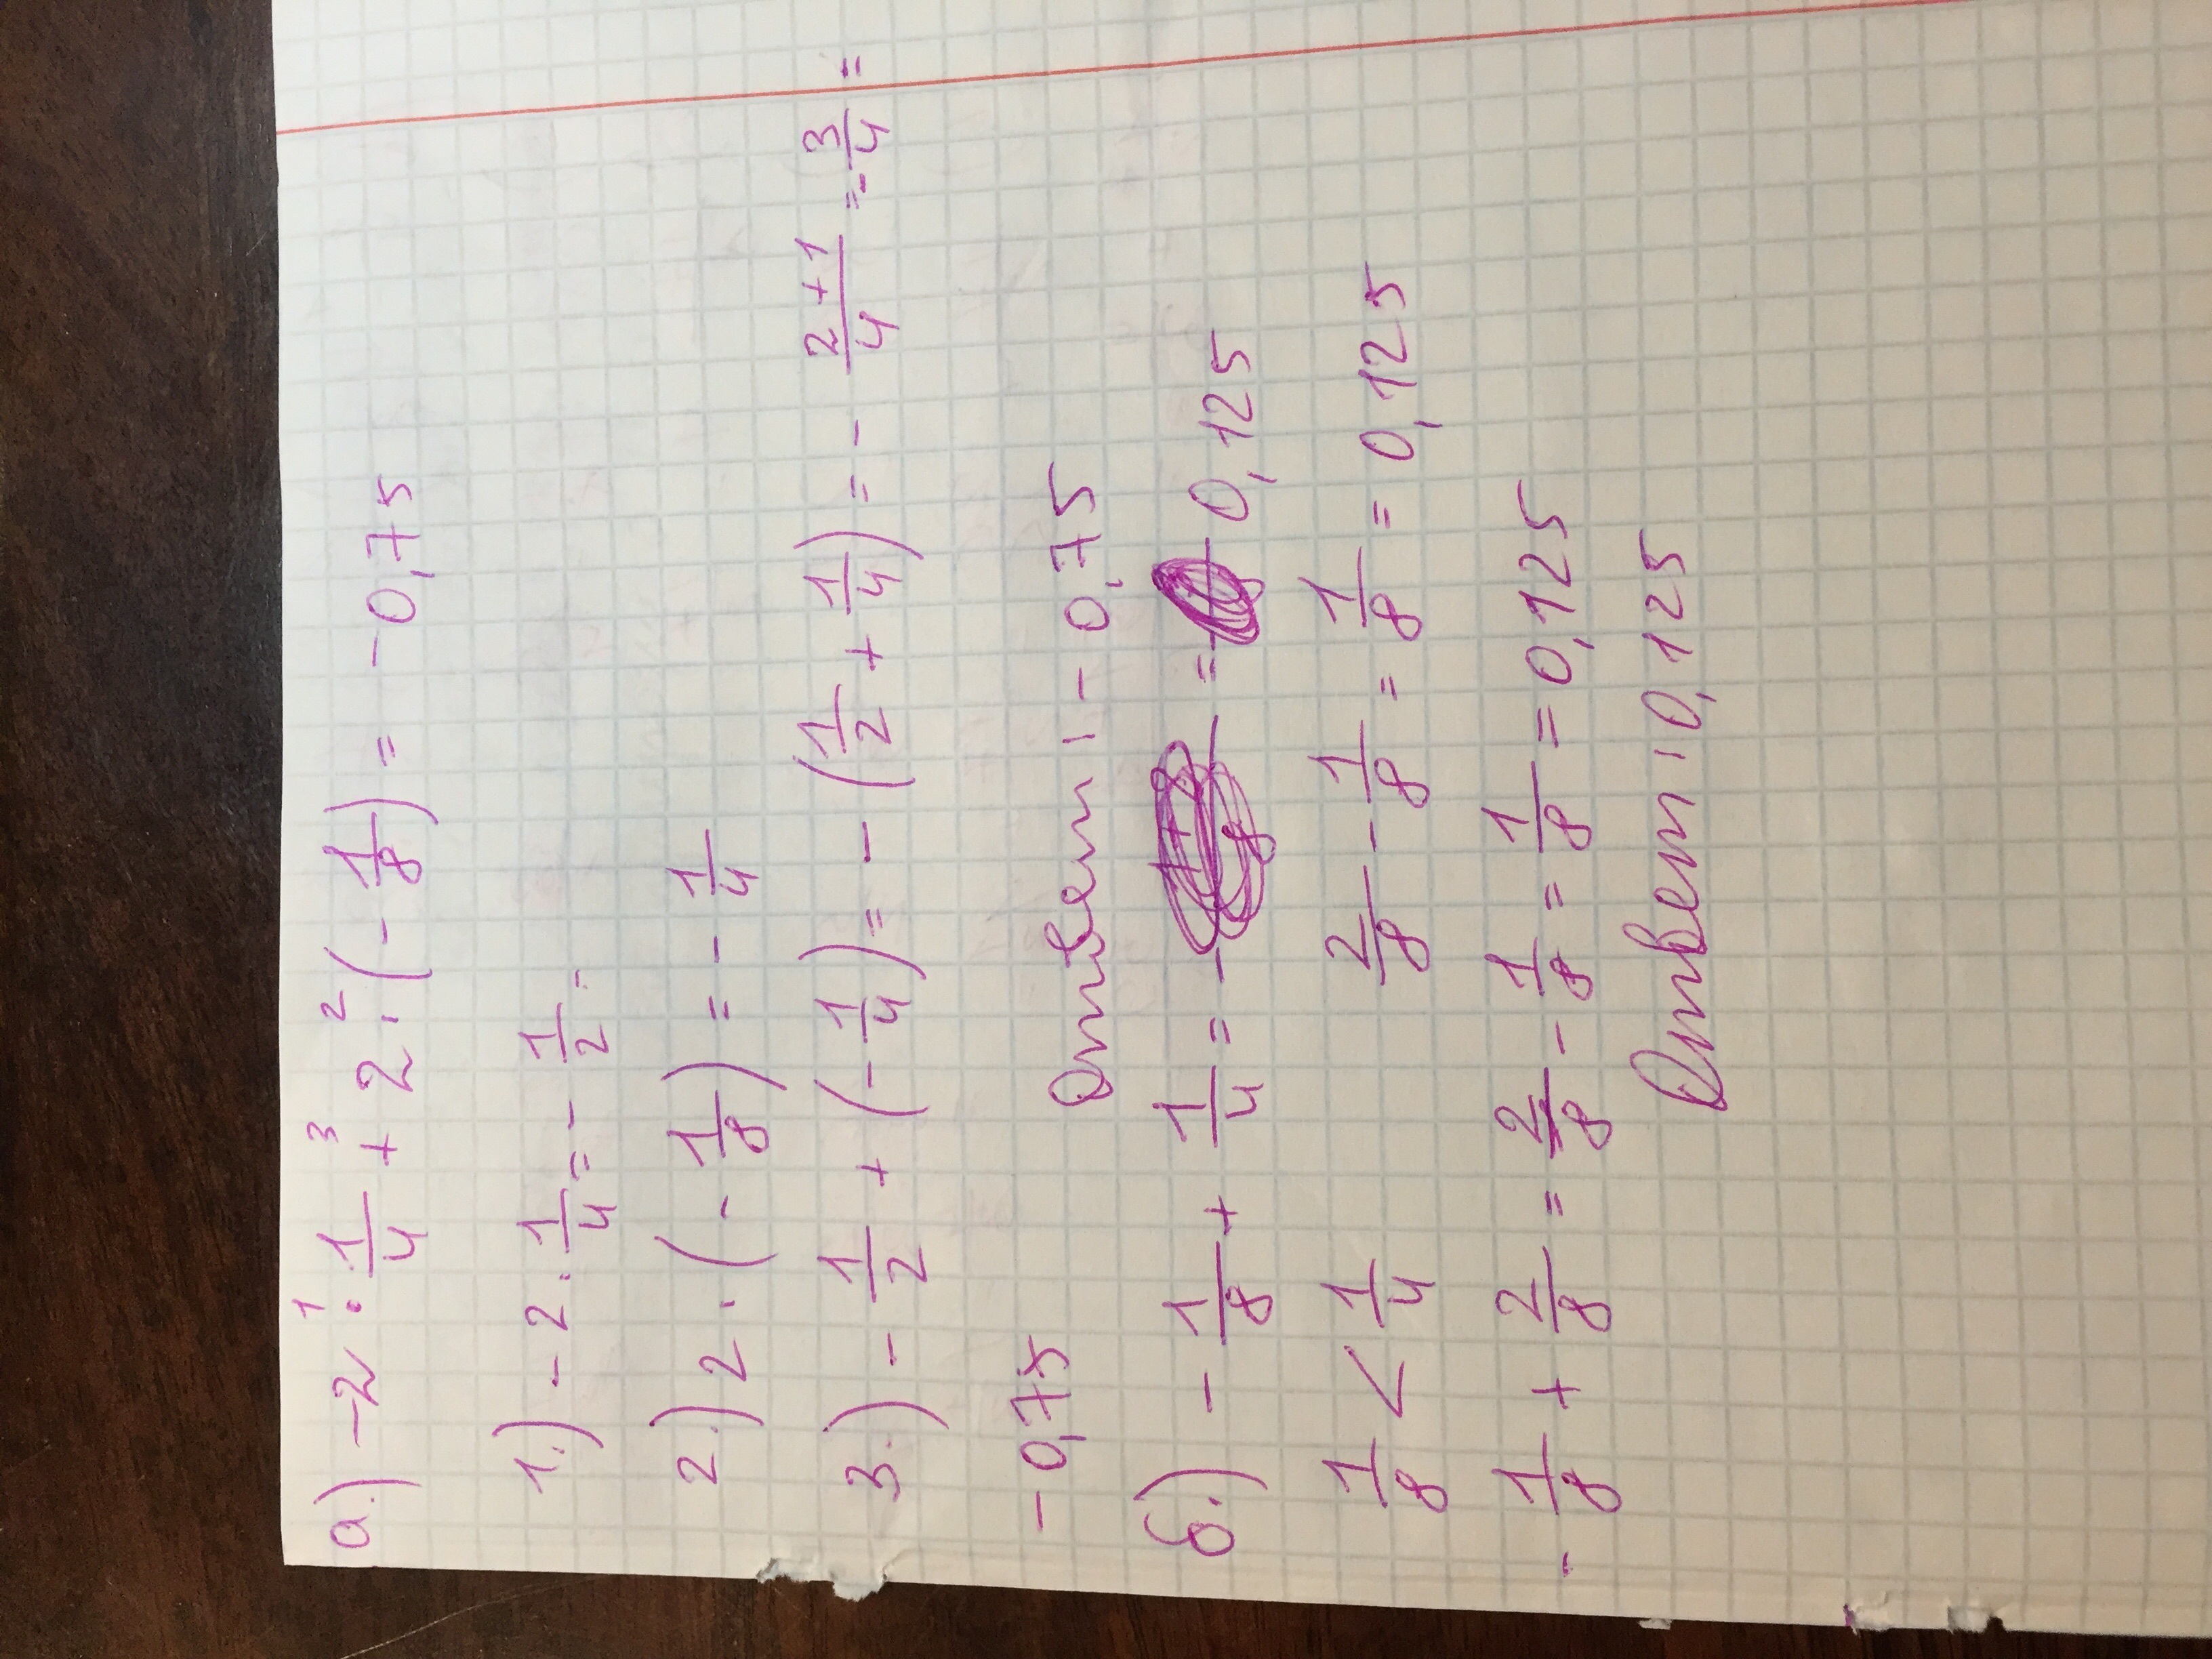 а.) -2 : 1/4 + 2 · (- 1/8) = -0,75
1 3 2
1.) -2 · 1/4 = - 1/2.
2.) 2 · (- 1/8) = - 1/4
3.) - 1/2 + (- 1/4) = - (1/2 + 1/4) = - 2+1/4 = - 3/4 =
-0,75
Ответ: -0,75
б.) - 1/8 + 1/4 = 0,125
1/8 < 1/4 2/8 - 1/8 = 1/8 = 0,125
- 1/8 + 2/8 = 2/8 - 1/8 = 1/8 = 0,125
Ответ: 0,125